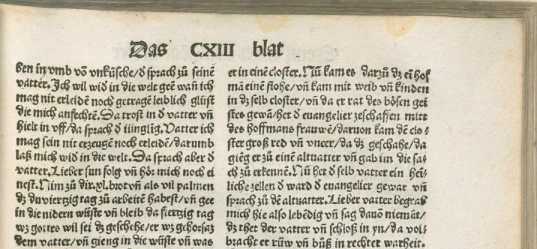 Das CXIII blat
sen in vmb vō vnküsche/ď sprach zů seinē
vatter. Ich wil wid in die welt geē wañ ich
mag nit erleidē noch getragē leiblich glüst
die mich anfechtē. Da trost in ď vatter vñ
hielt in vff/da sprach ď iüngliġ. Vatter ich
mag sein nit erzeugē noch erleidē/darumb
laß mich wid in die welt. Da sprach aber ď
vatter. Lieber sun folg vñ hör mich noch ei
nest. Nim zů dir .xl. brot vñ als vil palmen
dz du viertzig tag zů arbeitē habest/vñ gee
in die nidern wüste vñ bleib da fiertzig tag
wz gottes wil sei dz geschehe/er wz gehorsaz
dem vatter/vñ gieng in die wüste vñ was
er in einē closter. Nů kam es darzů dz eī hof
mā einē flohe/vñ kam mit weib vñ kinden
in dz selb closter/vñ da er rat des bösen gei
stes gewā/her ď euangelier zeschaffen mitt
des hoffmans frauwē/daruon kam dē clo⸗
ster groß red vñ vneer/da dz geschahe/da
gieng er zů einē altuatter vñ gab im die sa⸗
ch zů erkennē. Nů het ď selb vatter ein hei⸗
liche zellen ď ward ď euangelier gewar vñ
sprach zů dē altuatter. Lieber vatter begrab
mich hie also lebēdig vñ sag dauō niemāt/
dz thet der vatter vñ schloß in yn/da vol⸗
bracht er rüw vñ bůß in rechter warheit.